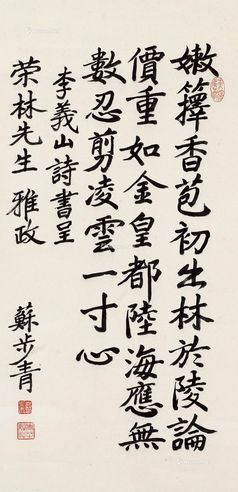 嫩籜香苞初出林於陵論
價重如金皇都陸海應無
數忍剪凌雲一寸心
李義山詩書呈
荣林先生 雅政
蘇步青